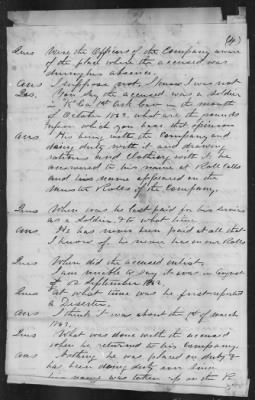 Ques Were the Officers of the Company aware
of the place where the accused was
during his absence.
Ans I suppose not, I know I was not
Ques. You say the accused was a Soldier
in "K" Co 1st Ark Cav in the month
of October 1862, what are the grounds
upon which you base this opinion
Ans His being with the Company and
doing duty with it and drawing
rations and clothing with it he
answered to his name at Roll Calls
and his name appeared on the
Muster Rolls of the Company.
Ques When was he last paid for his services
as a Soldier, & to what time
Ans He has never been paid at all that
I know of he never has on our Rolls
Ques When did the accused enlist.
I am unable to say it was in August
or September 1862.
Ques At what time was he first reported
a Deserter.
Ans I think it was about the 1st of March
1863.
Ques What was done with the accused
when he returned to his Company.
Ans Nothing he was placed on duty &
has been doing duty ever since
his name was taken up on the